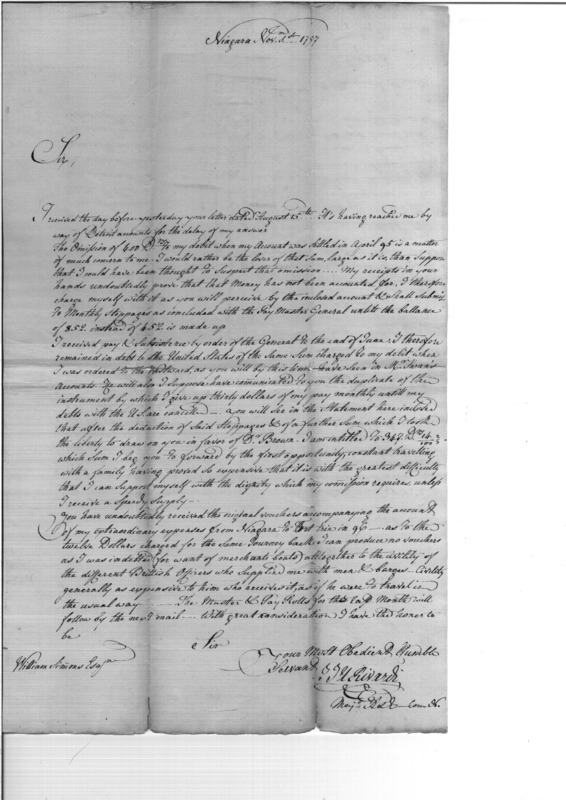 Niagara Nov. 1st 1797
Sir,
I received the day before yesterday your letter dated August 15th. It's having reached me by
way of Detroit accounts for the delay of my answer
The Omission of 400 Drs to my debit when my Account was settled in April 95 is a matter
of much concern to me. I would rather be the loser of that Sum, large as it is, than Suppose
that I could have been thought to Suspect that omission.... My receipts in your
hands undoubtedly prove that that Money has not been accounted for, I therefore
charge myself with it as you will perceive by the inclosed account & Shall Submit
to Monthly Stoppages as concluded with the Pay Master General until the ballance
of 852 instead of 452 is made up
I received pay & Subsistence by order of the General to the end of June. I therefore
remained in debt to the United States of the Same Sum charged to my debit when
I was ordered to the Westward, as you will by this time have seen in Mr Swan's
Accounts. He will also I Suppose have comunicated to you the duplicate of the
instrument by which I give up thirty dollars of my pay monthly untill my
debts with the U.S are cancelled — you will see in the Statement here inclosed
that after the deduction of Said Stoppages & of a further Sum which I took
the liberty to draw on you in favor of Dr Brown. I am intitled to 342 Drs 14/100
which Sum I beg you to forward by the first opportunity, constant travelling
with a family having proved So expensive that it is with the greatest difficulty
that I can Support myself with the dignity which my comission requires, unless
I receive a Speedy Supply —
You have undoubtedly received the original vouchers accompanying the account
of my extraordinary expences from Niagara to Fort Erie in 96 — as to the
twelve Dollars charged for the Same Journey back I can produce no vouchers
as I was indebted (for want of merchants boats) alltogether to the civility of
the different British Officers who Supplied me with men & barges — Civility
generally as expensive to him who receives it, as if he were to travel in
the usual way —— The Muster & Pay Rolls for the last Month will
follow by the next mail — With great consideration I have the honor to
be
Sir
Your Most Obedient Humble
Servant J J U Rivardi
Majr
William Simmons Esqr